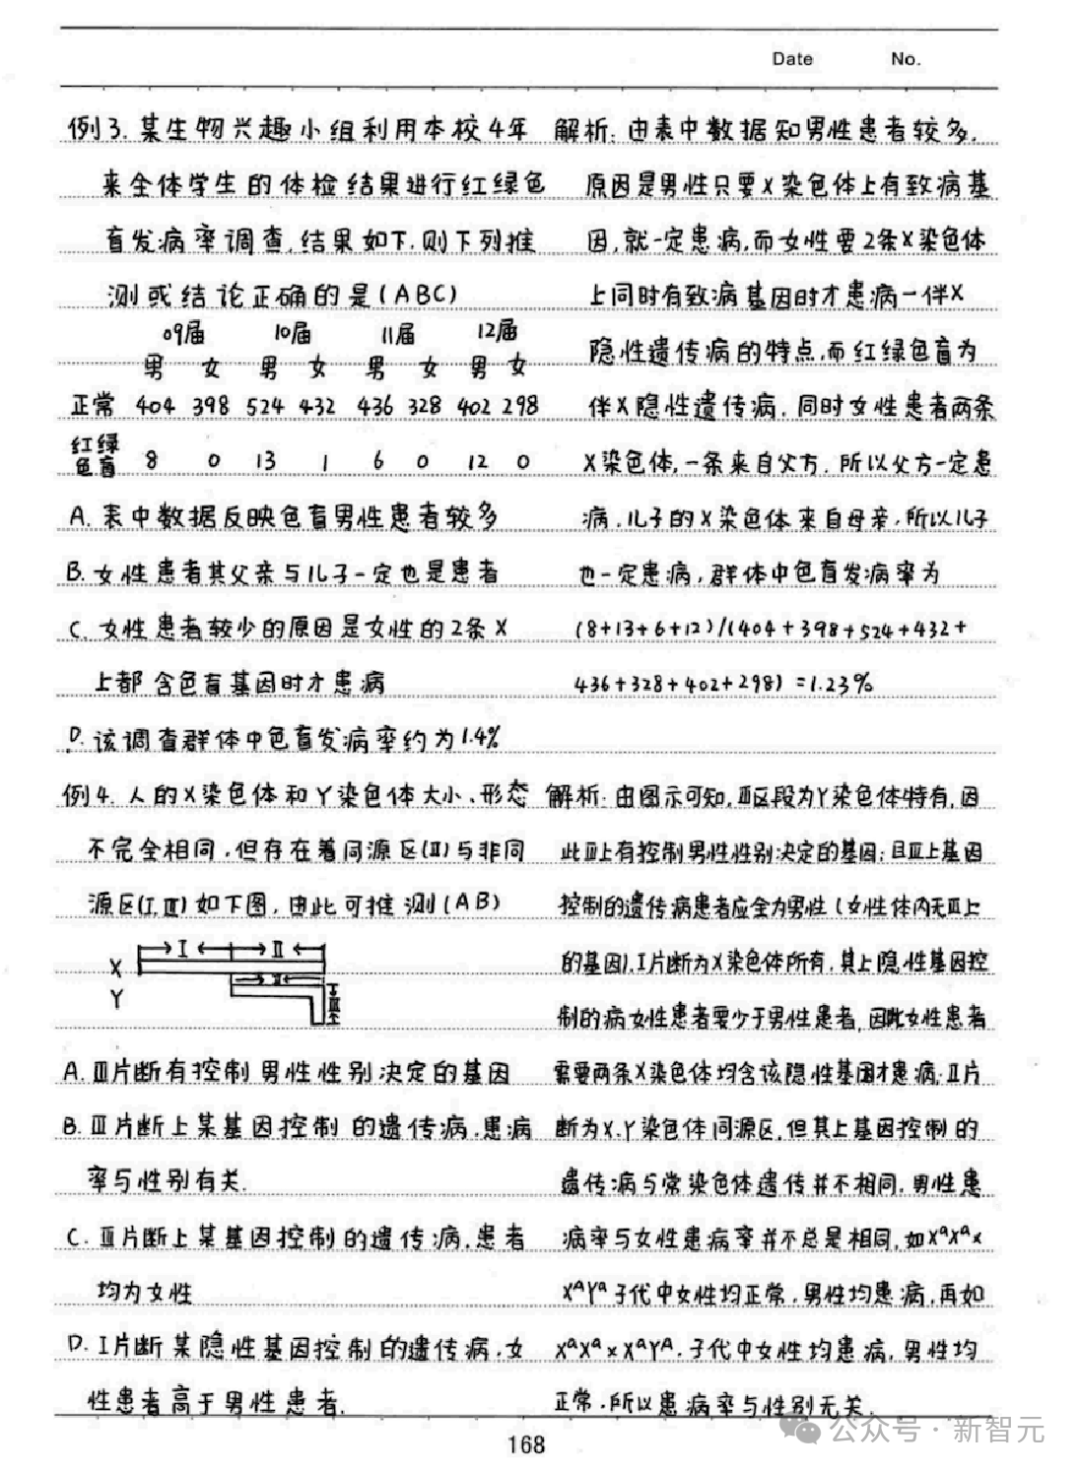 Date No.
例3. 某生物兴趣小组利用本校4年
来全体学生的体检结果进行红绿色
盲发病率调查,结果如下.则下列推
测或结论正确的是(ABC)
09届 10届 11届 12届
男 女 男 女 男 女 男 女
正常 404 398 524 432 436 328 402 298
红绿
色盲 8 0 13 1 6 0 12 0
A. 表中数据反映色盲男性患者较多
B. 女性患者其父亲与儿子一定也是患者
C. 女性患者较少的原因是女性的2条X
上都含色盲基因时才患病
D. 该调查群体中色盲发病率约为1.4%
解析: 由表中数据知男性患者较多.
原因是男性只要X染色体上有致病基
因,就一定患病,而女性要2条X染色体
上同时有致病基因时才患病一伴X
隐性遗传病的特点,而红绿色盲为
伴X隐性遗传病. 同时女性患者两条
X染色体,一条来自父方. 所以父方一定患
病,儿子的X染色体来自母亲,所以儿子
也一定患病, 群体中色盲发病率为
(8+13+6+12)/(404+398+524+432+
436+328+402+298)=1.23%
例4. 人的X染色体和Y染色体大小、形态
不完全相同,但存在着同源区(II)与非同
源区(I,III)如下图,由此可推测(AB)
I II
X
II
Y
III
A. III片断有控制男性性别决定的基因
B. III片断上某基因控制的遗传病,患病
率与性别有关.
C. III片断上某基因控制的遗传病,患者
均为女性
D. I片断某隐性基因控制的遗传病,女
性患者高于男性患者.
解析: 由图示可知,III区段为Y染色体特有,因
此III上有控制男性性别决定的基因; 且III上基因
控制的遗传病患者应全为男性(女性体内无III上
的基因),I片断为X染色体所有,其上隐性基因控
制的病女性患者要少于男性患者,因此女性患者
需要两条X染色体均含该隐性基因才患病;II片
断为X、Y染色体同源区,但其上基因控制的
遗传病与常染色体遗传并不相同,男性患
病率与女性患病率并不总是相同,如XᵃXᵃ×
XᴬYᵃ子代中女性均正常,男性均患病,再如
XᵃXᵃ×XᵃYᴬ,子代中女性均患病,男性均
正常,所以患病率与性别无关.
168
公众号·新智元